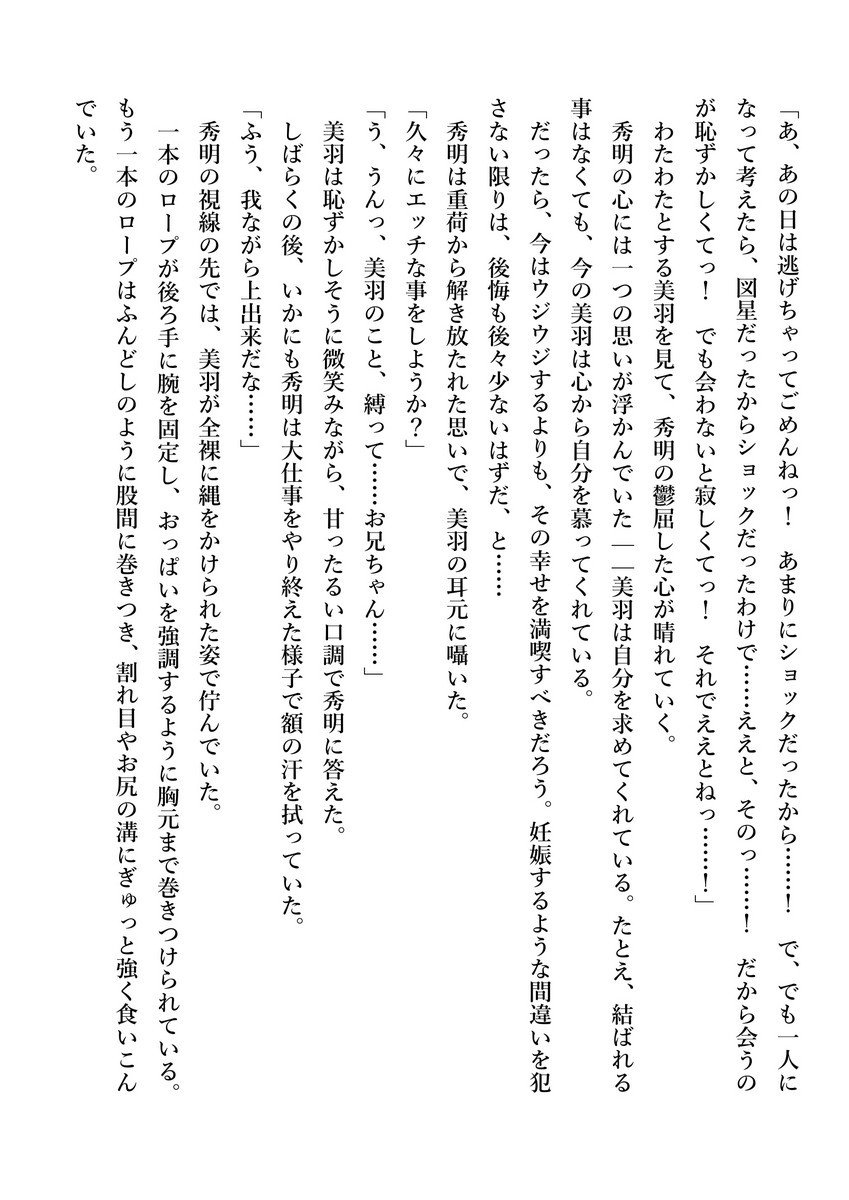 「あ、あの日は逃げちゃってごめんねっ！　あまりにショックだったから………！　で、でも一人に
なって考えたら、図星だったからショックだったわけで……ええと、そのっ……！　だから会うの
が恥ずかしくてっ！　でも会わないと寂しくてっ！　それでええとねっ……！」
わたわたとする美羽を見て、秀明の鬱屈した心が晴れていく。
秀明の心には一つの思いが浮かんでいた――美羽は自分を求めてくれている。たとえ、結ばれる
事はなくても、今の美羽は心から自分を慕ってくれている。
だったら、今はウジウジするよりも、その幸せを満喫すべきだろう。妊娠するような間違いを犯
さない限りは、後悔も後々少ないはずだ、と……
秀明は重荷から解き放たれた思いで、美羽の耳元に囁いた。
「久々にエッチな事をしようか？」
「う、うんっ、美羽のこと、縛って……お兄ちゃん……」
美羽は恥ずかしそうに微笑みながら、甘ったるい口調で秀明に答えた。
しばらくの後、いかにも秀明は大仕事をやり終えた様子で額の汗を拭っていた。
「ふう、我ながら上出来だな……」
秀明の視線の先では、美羽が全裸に縄をかけられた姿で佇んでいた。
一本のロープが後ろ手に腕を固定し、おっぱいを強調するように胸元まで巻きつけられている。
もう一本のロープはふんどしのように股間に巻きつき、割れ目やお尻の溝にぎゅっと強く食いこん
でいた。